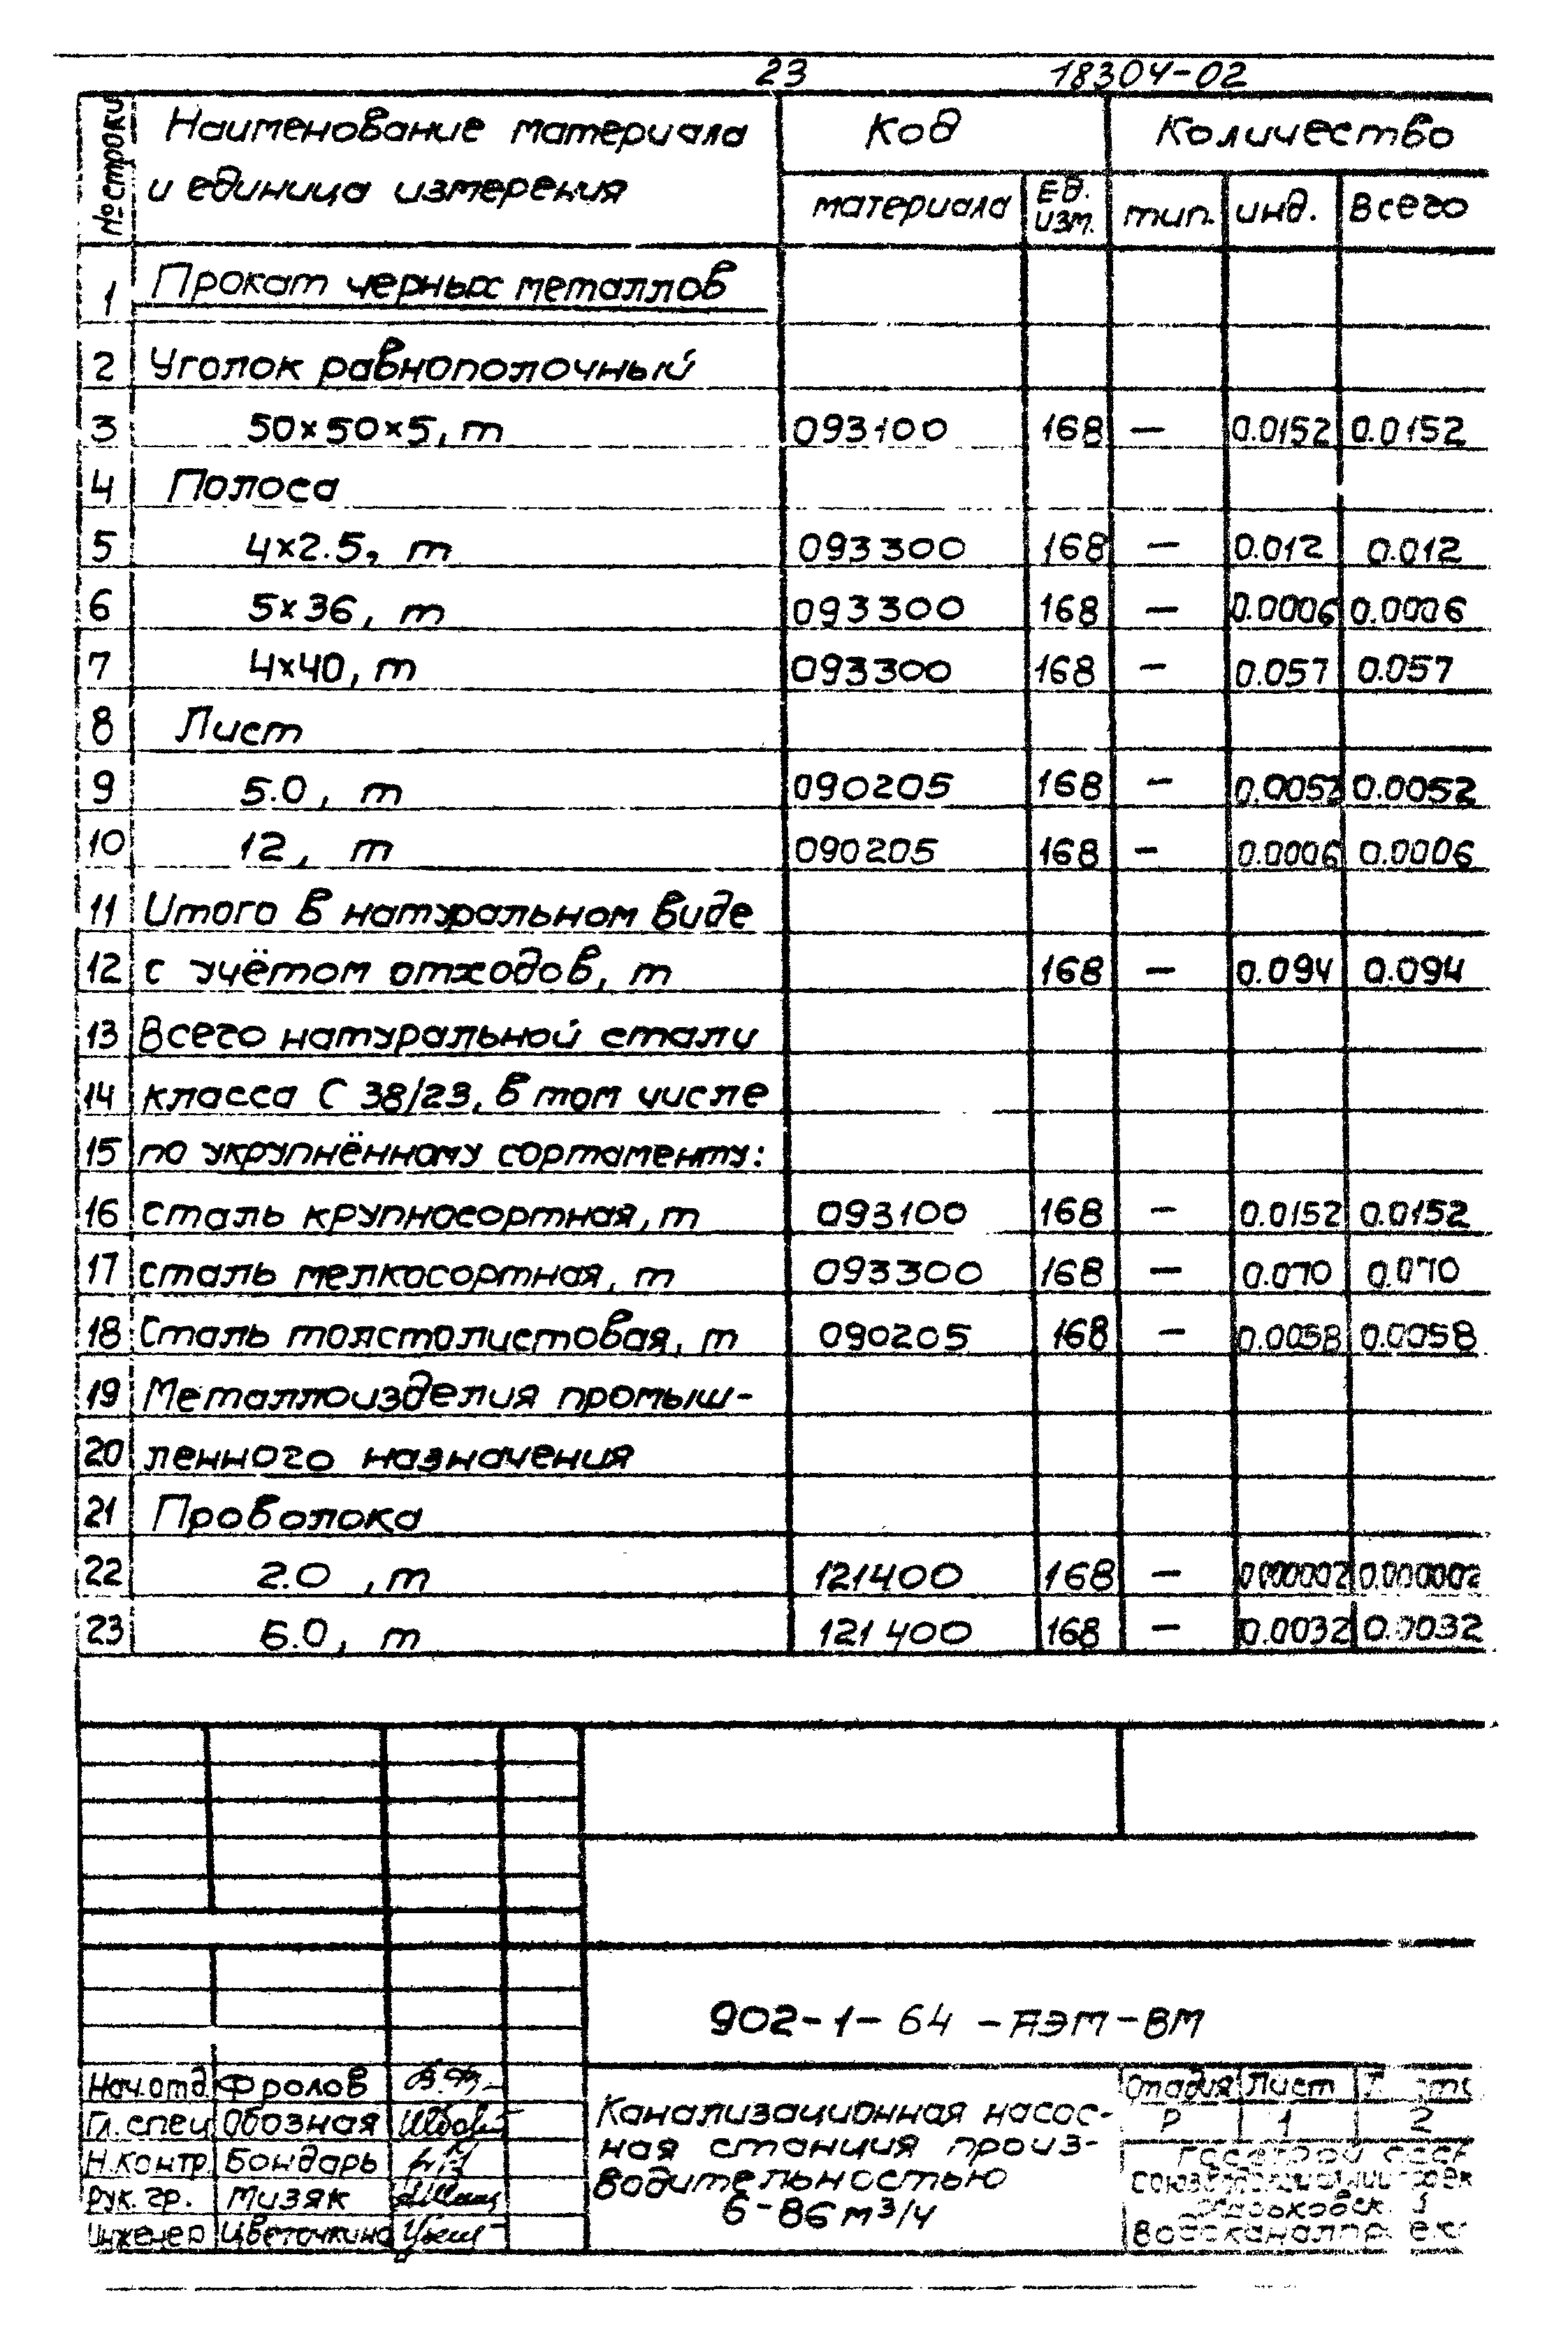 23 18304-02
№ строки Наименование материала и единица измерения Код Количество
материала Ед. изм. тип. инд. Всего
1 Прокат черных металлов
2 Уголок равнополочный
3 50×50×5, т 093100 168 — 0.0152 0.0152
4 Полоса
5 4×2.5, т 093300 168 — 0.012 0.012
6 5×36, т 093300 168 — 0.0006 0.0006
7 4×40, т 093300 168 — 0.057 0.057
8 Лист
9 5.0, т 090205 168 — 0.0052 0.0052
10 12, т 090205 168 — 0.0006 0.0006
11 Итого в натуральном виде
12 с учётом отходов, т 168 — 0.094 0.094
13 Всего натуральной стали
14 класса С 38/23, в том числе
15 по укрупнённому сортаменту:
16 сталь крупносортная, т 093100 168 — 0.0152 0.0152
17 сталь мелкосортная, т 093300 168 — 0.070 0.070
18 Сталь толстолистовая, т 090205 168 — 0.0058 0.0058
19 Металлоизделия промыш-
20 ленного назначения
21 Проволока
22 2.0, т 121400 168 — 0.000002 0.000002
23 6.0, т 121400 168 — 0.0032 0.0032
902-1-64-АЭМ-ВМ
Нач.отд. Фролов
Гл. спец Обозная
Н.контр. Бондарь
Рук. гр. Мизяк
Инженер Цветочкина
Канализационная насос-
ная станция произ-
водительностью
6-86 м³/ч
Стадия Лист
Р 1 2
Госстрой СССР